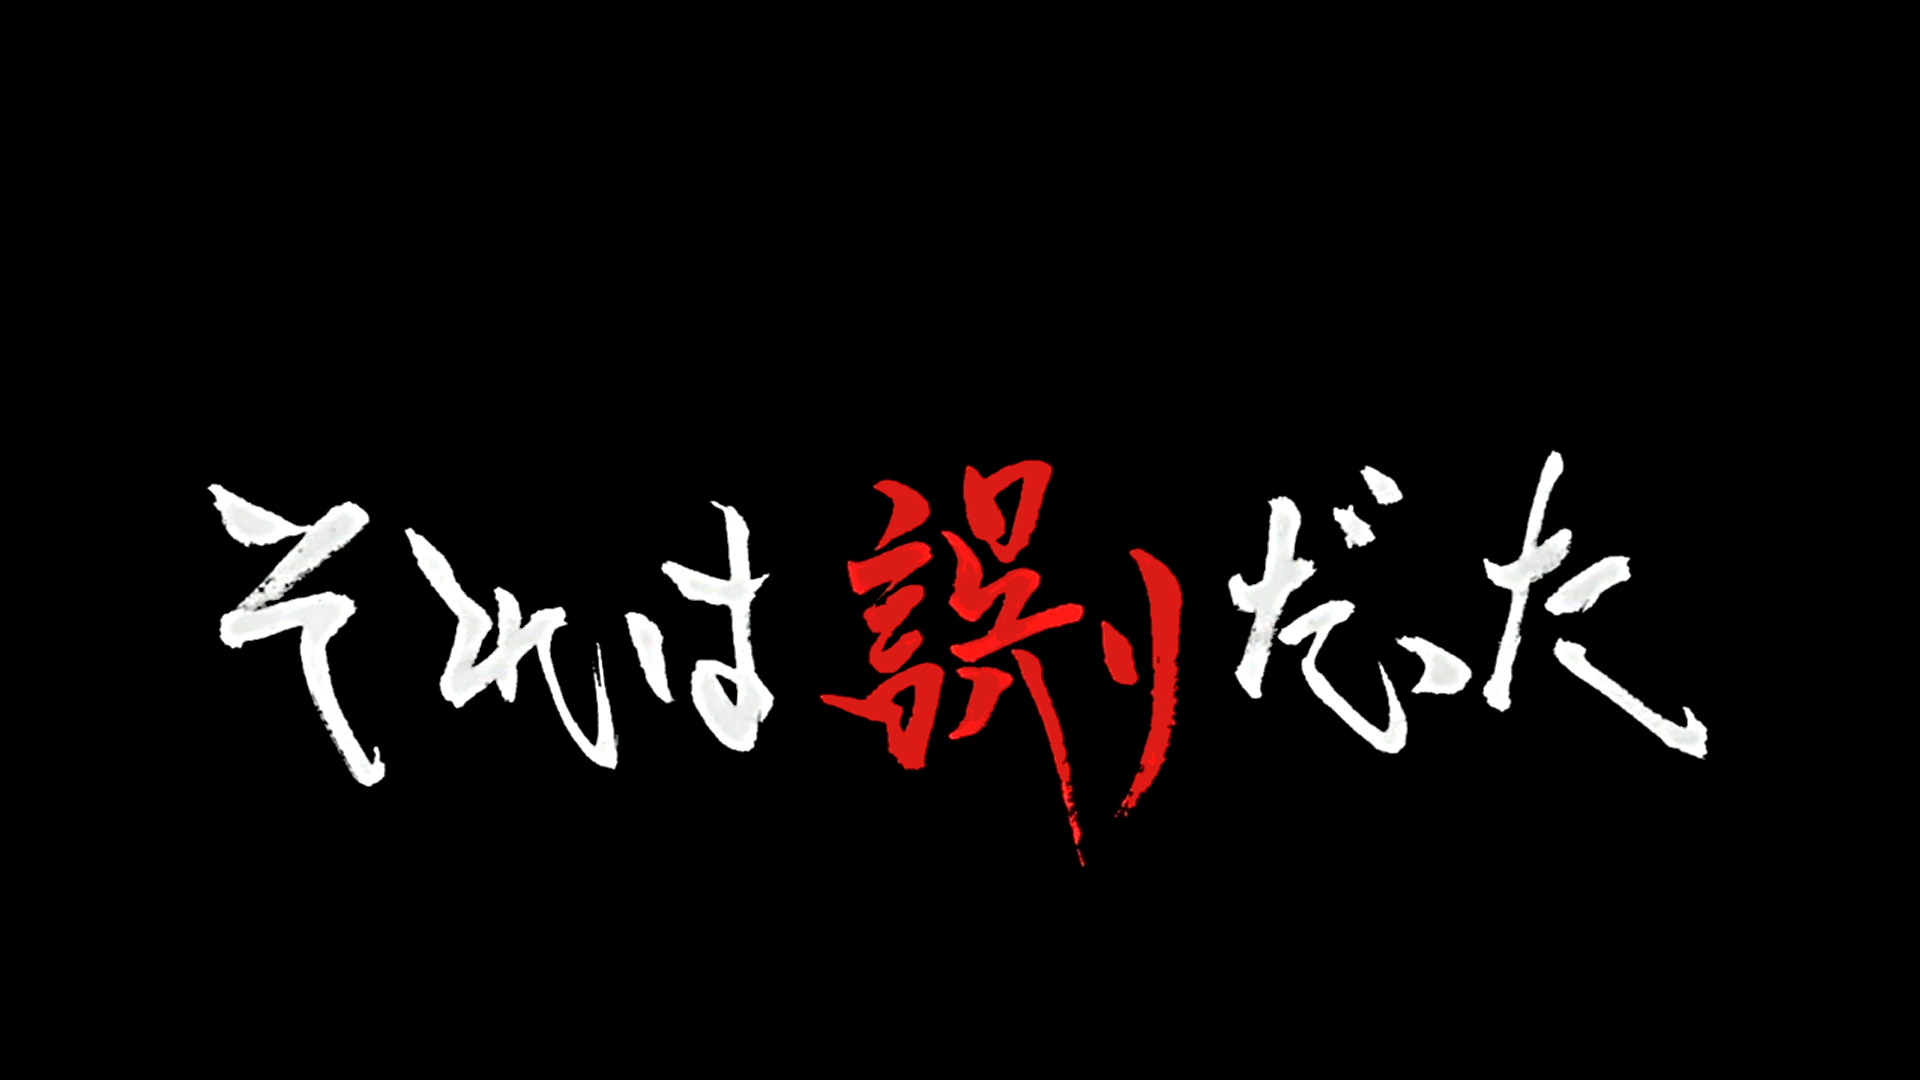 それは誤りだった